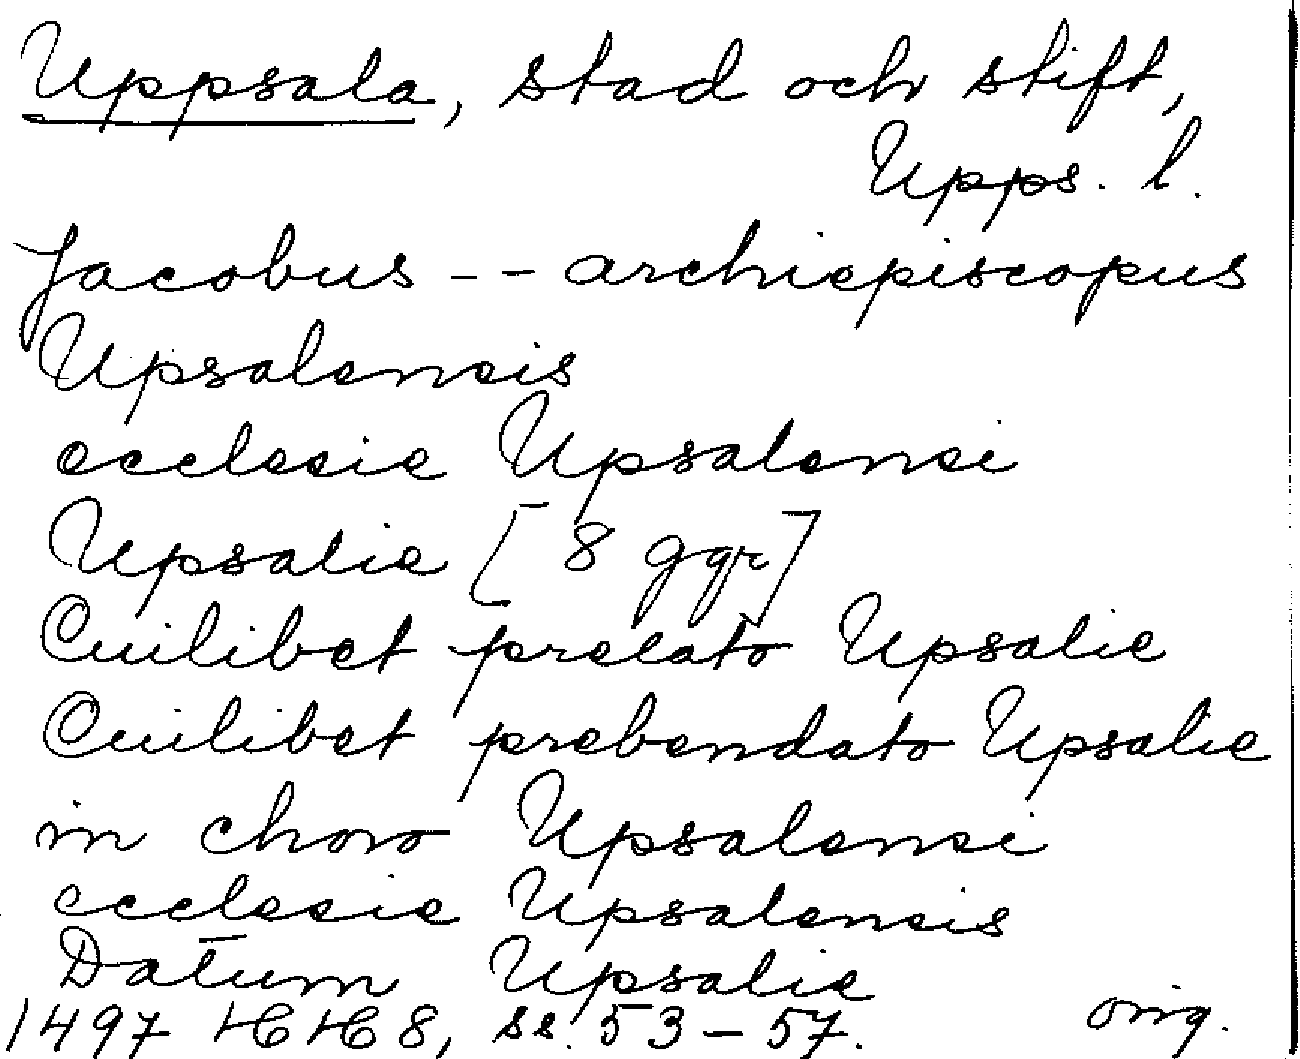 Uppsala, stad och stift,
Upps. l.
Jacobus -- archiepiscopus
Upsalensis
ecclesie Upsalensi
Upsalie [8 ggr]
Cuilibet prelato Upsalie
Cuilibet prebendato Upsalie
in choro Upsalensi
ecclesie Upsalensis
Datum Upsalie
1497 HH 8, ss. 53-57. orig.